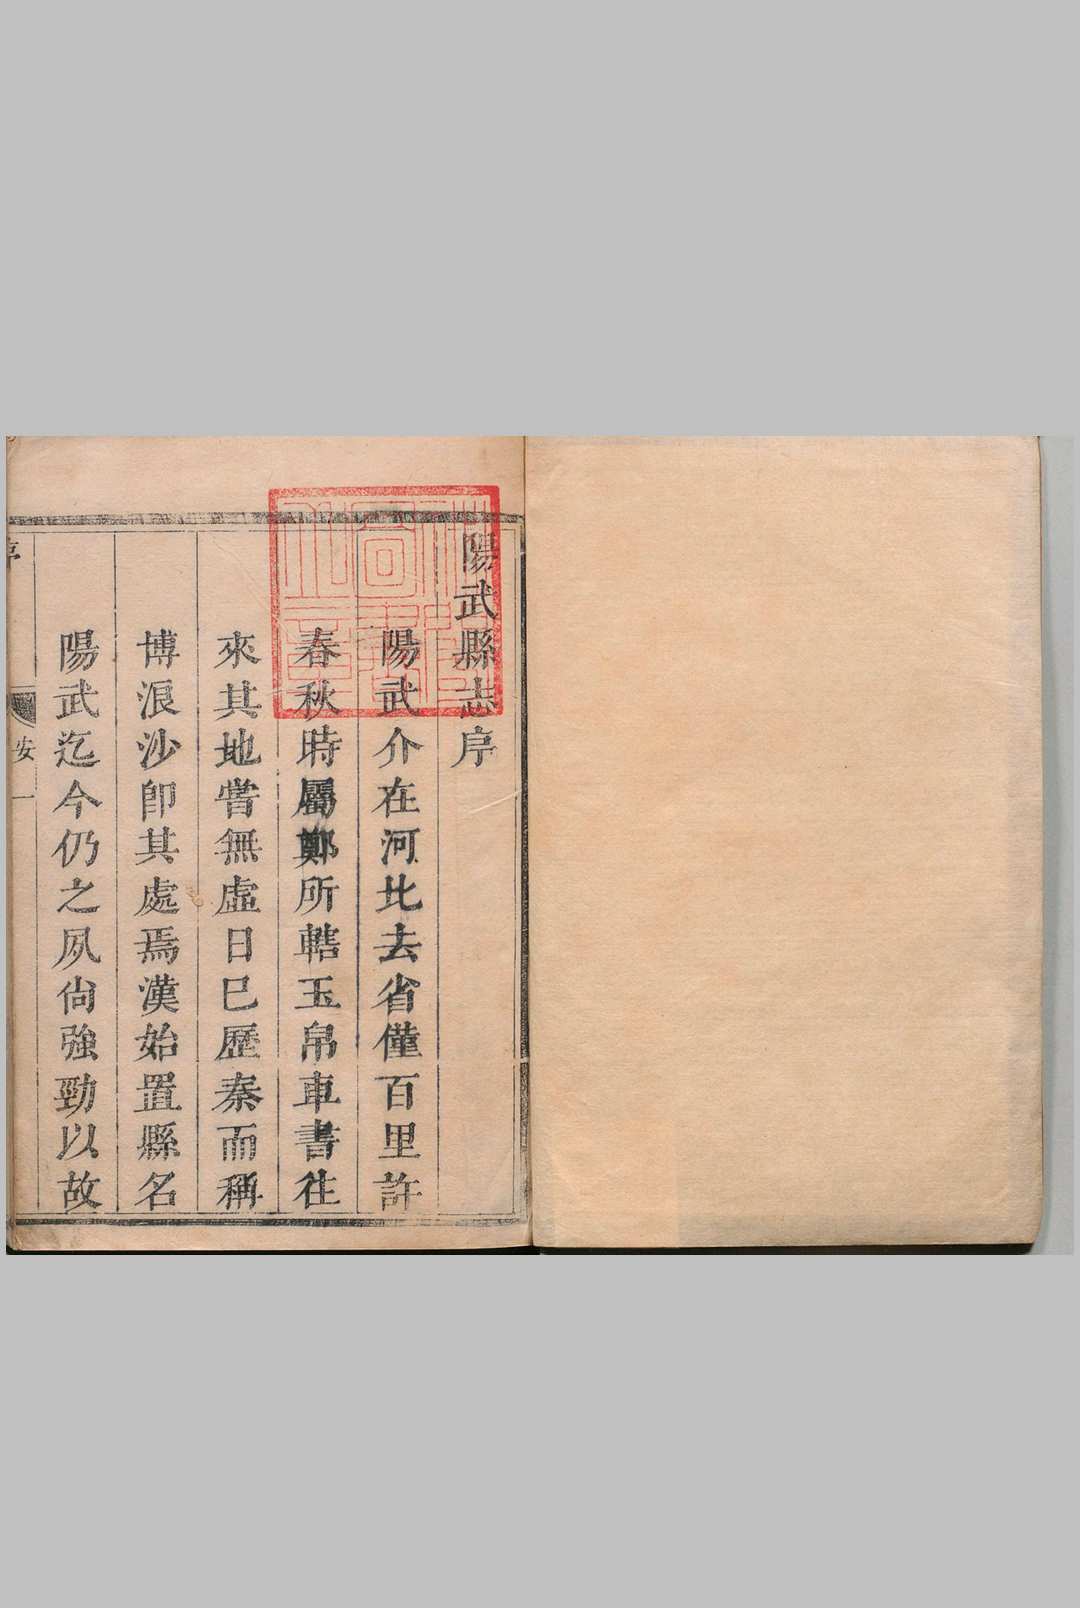 陽武縣志序
陽武介在河北去省僅百里許
春秋時屬鄭所轄玉帛車書往
來其地嘗無虛日已歷秦而稱
博浪沙卽其處焉漢始置縣名
陽武迄今仍之夙尙強勁以故
安
一